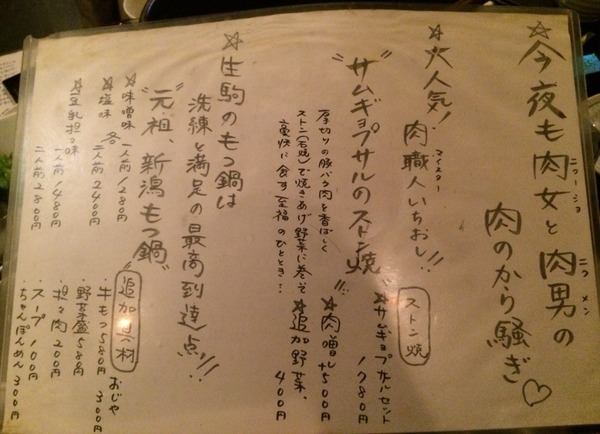 ☆今夜も肉女と肉男の
ニクージョ
ニクメン
肉のから騒ぎ♡
☆大人気！
肉職人いちおし!!
マイスター
"サムギョプサルのストン焼"
厚切りの豚バラ肉を香ばしく
ストン(石焼)で焼きあげ野菜に巻いて
豪快に食す至福のひととき…
ストン焼
☆サムギョプサルセット
1780円
☆肉増し500円
☆追加野菜、
400円
☆生駒のもつ鍋は
洗練と満足の最高到達点!!
"元祖、新潟もつ鍋"
☆味噌味
☆塩味
各
一人前1280円
二人前2400円
☆豆乳担々味
一人前1480円
二人前2800円
追加具材
・牛もつ580円
おじや
300円
・野菜盛580円
・担々肉200円
・スープ100円
・ちゃんぽんめん300円